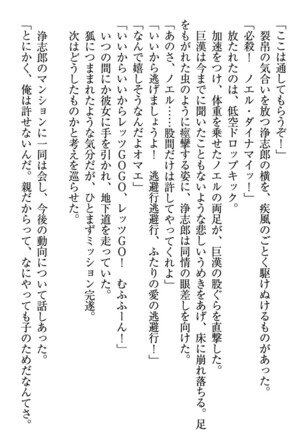 「ここは通してもらうぞ！」
裂帛の気合いを放つ浄志郎の横を、疾風のごとく駆けぬけるものが。
「必殺！　ノエル・ダイナマイッ！」
放たれたのは、低空ドロップキック。
加速をつけ、体重を乗せたノエルの両足が、巨漢の股ぐらを直撃した。
巨漢は今までに聞いたこともないような悲しいうめきをあげ、床に崩れ落ちる。足
をもがれた虫のように痙攣する姿に、浄志郎は同情の眼差しを向けた。
「あのさ、ノエル……股間だけは許してやってくれよ」
「いいから逃げましょうよ！　逃避行逃避行、ふたりの愛の逃避行！」
「なんで嬉しそうなんだよオマエ」
「いいからいいからレッツGOGO、レッツGO！　むふふーん！」
いつの間にか彼女に手を引かれ、地下道を走っていた。
狐につままれたような気分だが、ひとまずミッション完遂。
次はどうしたものかと考えを巡らせた。
浄志郎のマンションに一同は会し、今後の動向について話しあった。
「とにかく、俺は許せないんだ。親だからって、なにやっても子のためだなんてさ。